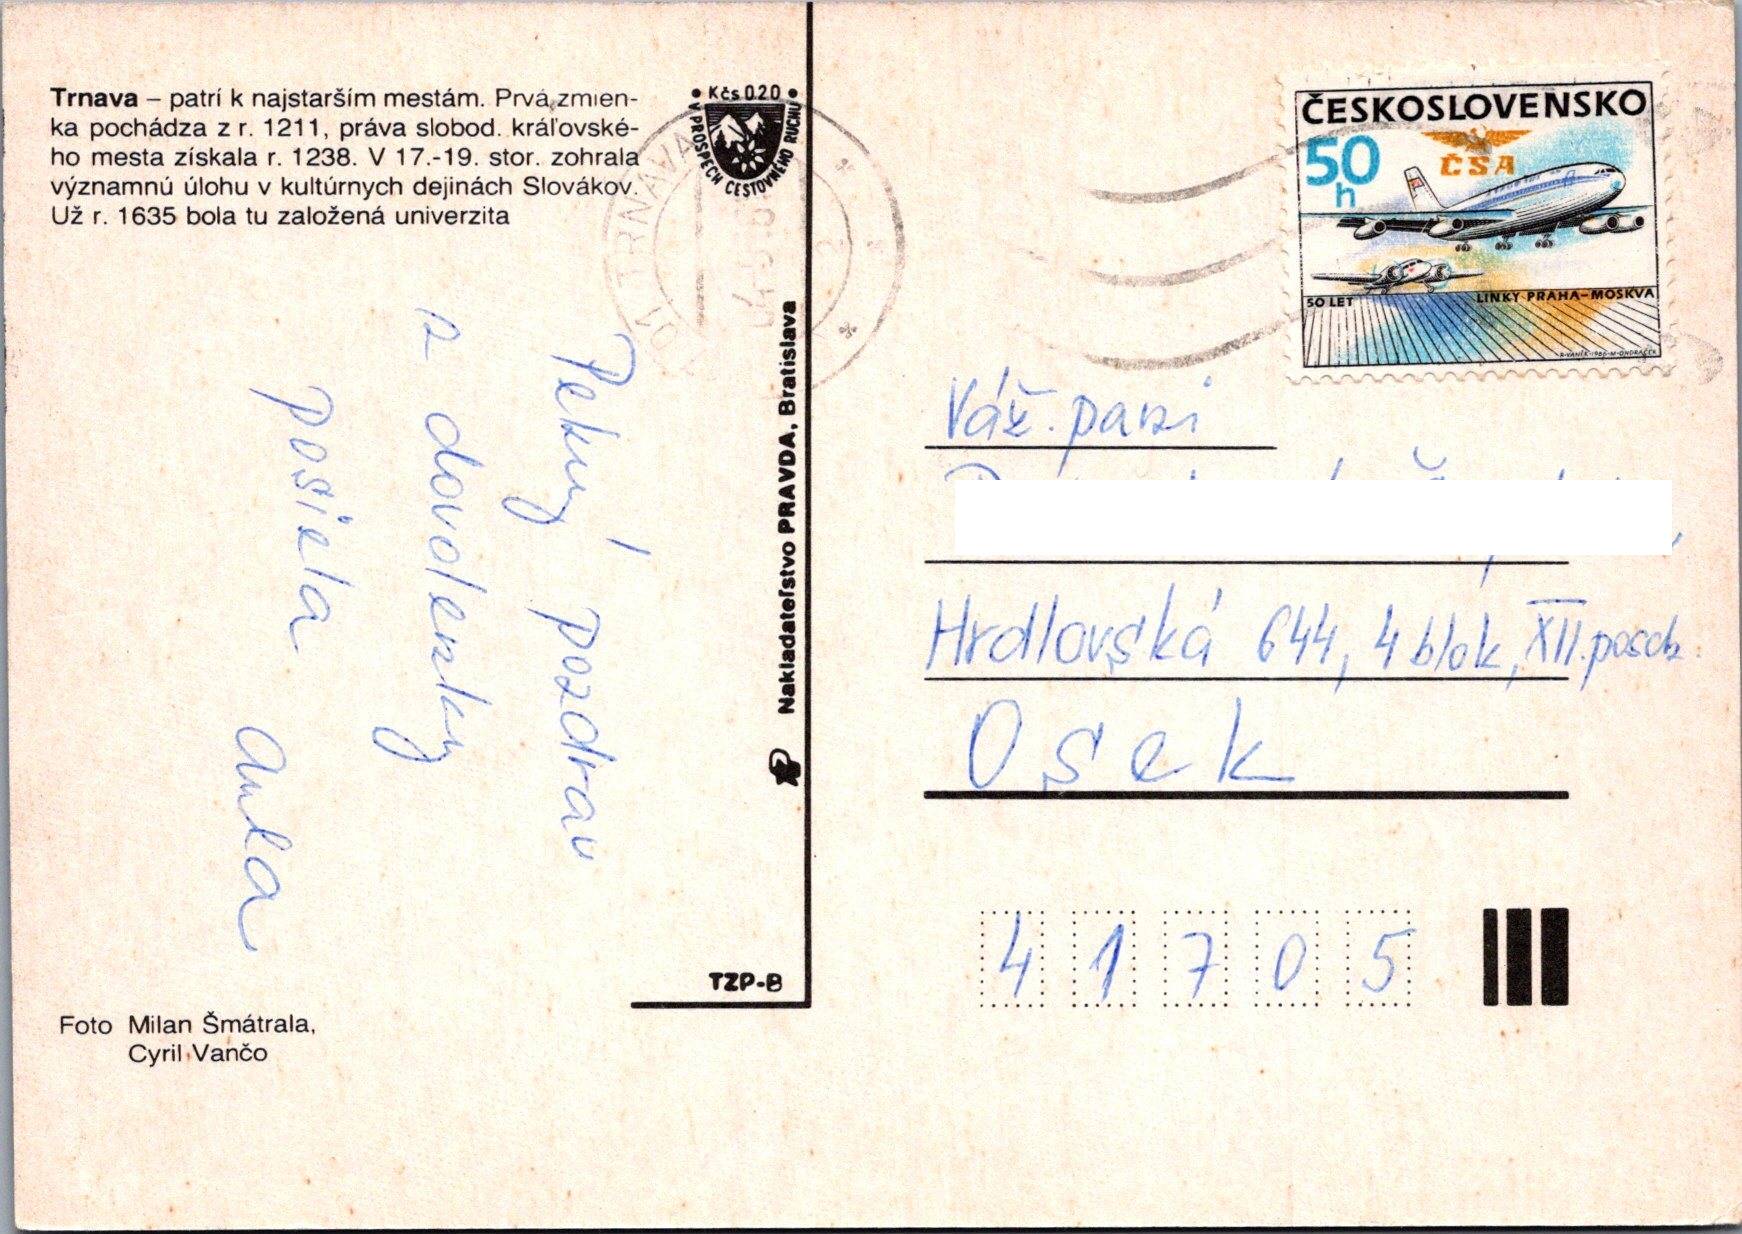 Trnava – patrí k najstarším mestám. Prvá zmien-
ka pochádza z r. 1211, práva slobod. kráľovské-
ho mesta získala r. 1238. V 17.-19. stor. zohrala
významnú úlohu v kultúrnych dejinách Slovákov.
Už r. 1635 bola tu založená univerzita
• Kčs 0.20 •
V PROSPECH CESTOVNÉHO RUCHU
01 TRNAVA
ČESKOSLOVENSKO
50 h
ČSA
50 LET
LINKY PRAHA–MOSKVA
R. VANĚK-1986-M. ONDRÁČEK
Pekný pozdrav
z dovolenky
posiela
Nakladateľstvo PRAVDA, Bratislava
Váž. pani
Hrdlovská 644, 4 blok, XII. posch.
Osek
41705
TZP-B
Foto Milan Šmátrala,
Cyril Vančo